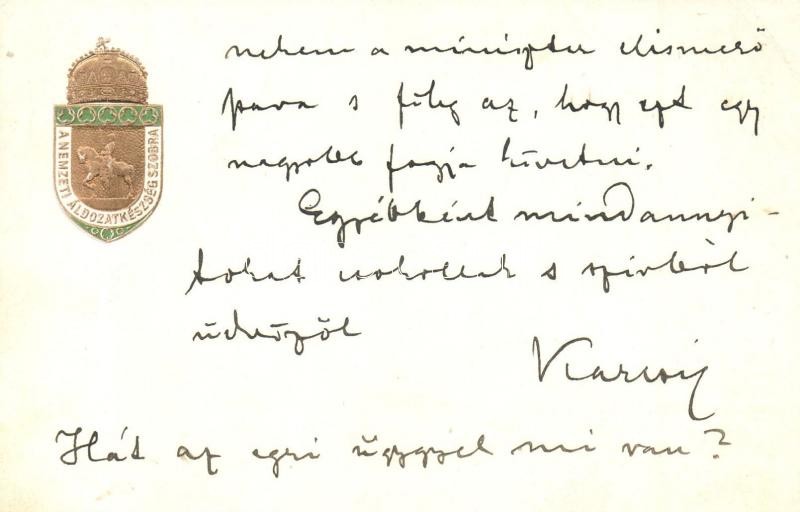 A NEMZETI ÁLDOZATKÉSZSÉG SZOBRA
nekem a miniszter elismerő
szava s főleg az, hogy ezt egy
nagyobb fogja követni.
Egyébként mindannyi-
tokat csókollak s szívből
üdvözöl
Karcsi
Hát az egri üggyel mi van?